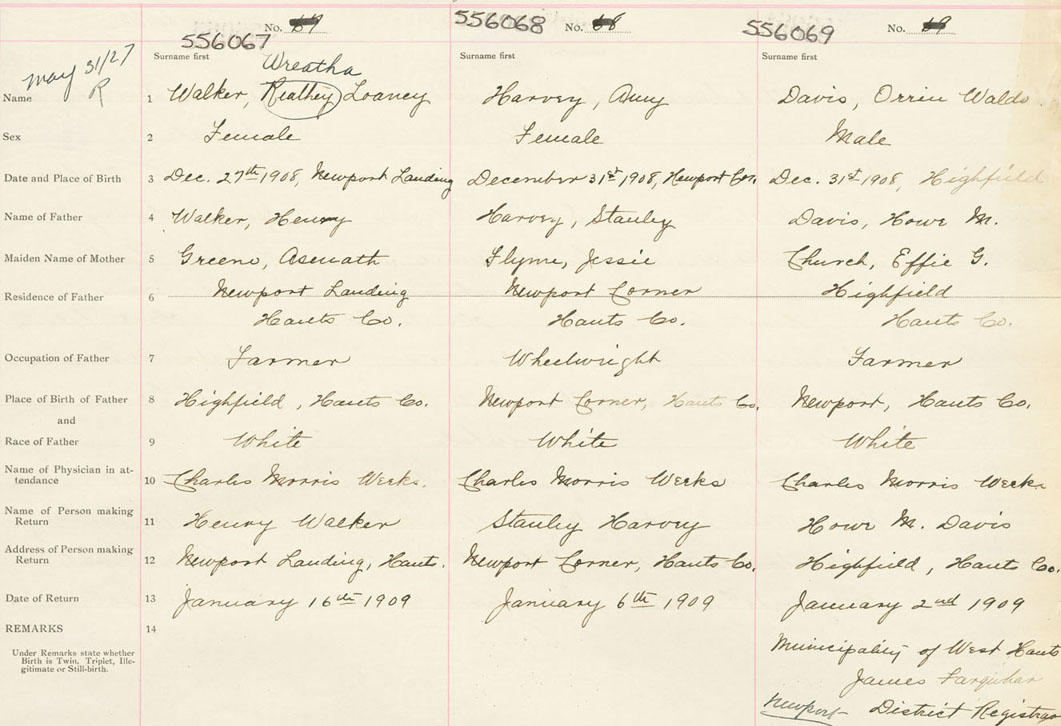 No. 556067 556068 No. 68 556069 No. 69
May 31/27
R
Surname first Wreatha Surname first Surname first
Name 1 Walker, Reathey Loaney Harvey, Amy Davis, Orrin Waldo
Sex 2 Female Female Male
Date and Place of Birth 3 Dec. 27th 1908, Newport Landing December 31st 1908, Newport Cor. Dec. 31st 1908, Highfield
Name of Father 4 Walker, Henry Harvey, Stanley Davis, Howe M.
Maiden Name of Mother 5 Greeno, Asenath Flynn, Jessie Church, Effie G.
Residence of Father 6 Newport Landing Newport Corner Highfield
Hants Co. Hants Co. Hants Co.
Occupation of Father 7 Farmer Wheelwright Farmer
Place of Birth of Father 8 Highfield, Hants Co. Newport Corner, Hants Co. Newport, Hants Co.
and
Race of Father 9 White White White
Name of Physician in at-
tendance 10 Charles Morris Charles Morris Charles Morris
Name of Person making
Return 11 Henry Walker Stanley Harvey Howe M. Davis
Address of Person making
Return 12 Newport Landing, Hants. Newport Corner, Hants Co. Highfield, Hants Co.
Date of Return 13 January 16th 1909 January 6th 1909 January 2nd 1909
REMARKS 14
Under Remarks state whether
Birth is Twin, Triplet, Ille-
gitimate or Still-birth.
Municipality of West Hants
James Farquhar
Newport District Registrar